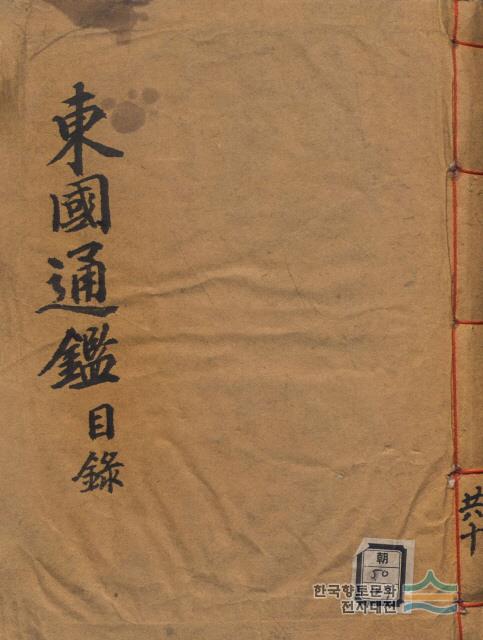 東國通鑑 目錄
共六十
朝
50
한국향토문화
전자대전